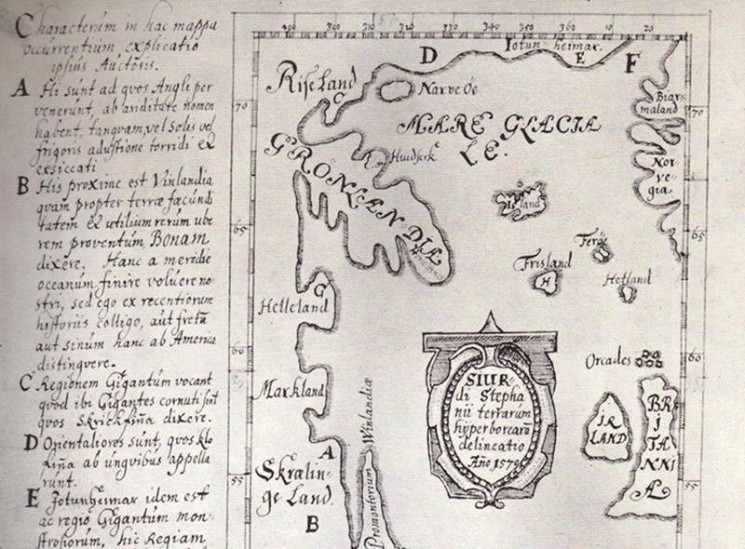 Characterum in hac mappa
occurrentium explicatio
ipsius Auctoris.
A Hi sunt ad quos Angli per
venerunt, ab ariditate nomen
habent, tanquam vel Solis vel
frigoris adustione torridi et
exsiccati
B His proxime est Vinlandia
quam propter terræ fæcundi
tatem et utilium rerum ube
rem proventum Bonam
dixere. Hanc a meridie
oceanum finire voluere no
stri, sed ego ex recentiorum
historiis colligo, aut fretũ
aut sinum hanc ab America
distinguere.
C Regionem Gigantum vocant
quod ibi Gigantes cornuti sint
quos Skrickfiña dixere.
D Orientaliores sunt, quos klo
fiña ab unguibus appella
runt.
E Jotunheimar idem est
ac regio Gigantum mon
strosorum, hic Regiam
340
350
360
10
20
D
Iotun heimar.
E
F
Riseland
C
Narve Oe
Biar
maland
70
70
MARE GLACIA
LE.
Huidserk
GRONLANDIA
Nor
ve
gia
Island
65
65
Feröe
Frisland
H
Hetland
G
Helleland
60
60
Orcades
Markland
SIUR
di Stepha
nii terrarum
hyperborearũ
delineatio
Año 1579
IR
LAND
BR
I
TA
NNI
Æ
A
Promontorium Winlandiæ
Skralin
ge Land
B
55
55